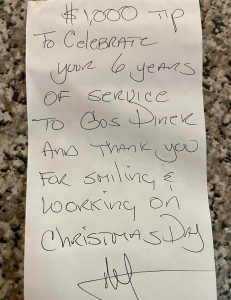 $1,000 TIP
To CELEBRATE
your 6 years
OF SERVICE
TO Gus DINER
AND THANK YOU
FOR SMILING &
WORKING ON
CHRISTMAS DAY